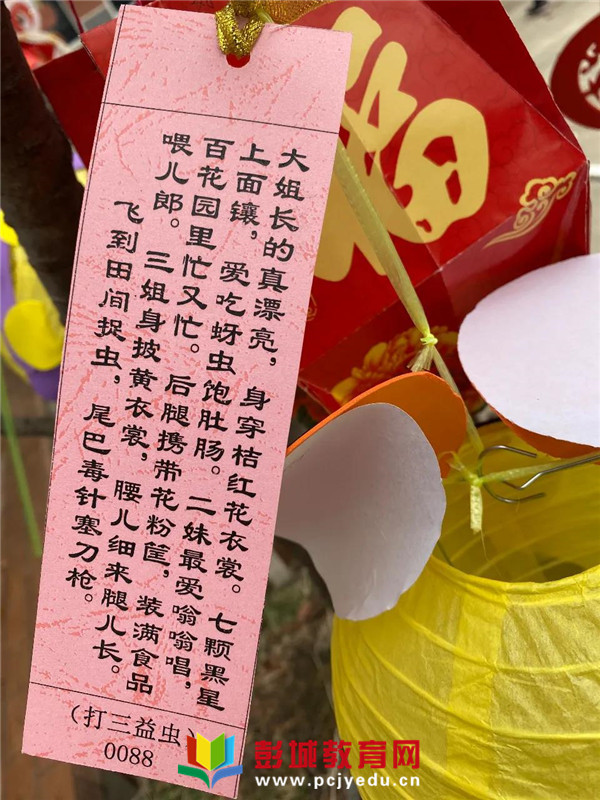 大姐长的真漂亮，身穿桔红花衣裳。七颗黑星
上面镶，爱吃蚜虫饱肚肠。二妹最爱嗡嗡唱，
百花园里忙又忙。后腿携带花粉筐，装满食品
喂儿郎。三姐身披黄衣裳，腰儿细来腿儿长。
飞到田间捉虫，尾巴毒针塞刀枪。
（打三益虫）
0088
彭城教育网
www.pcjyedu.cn